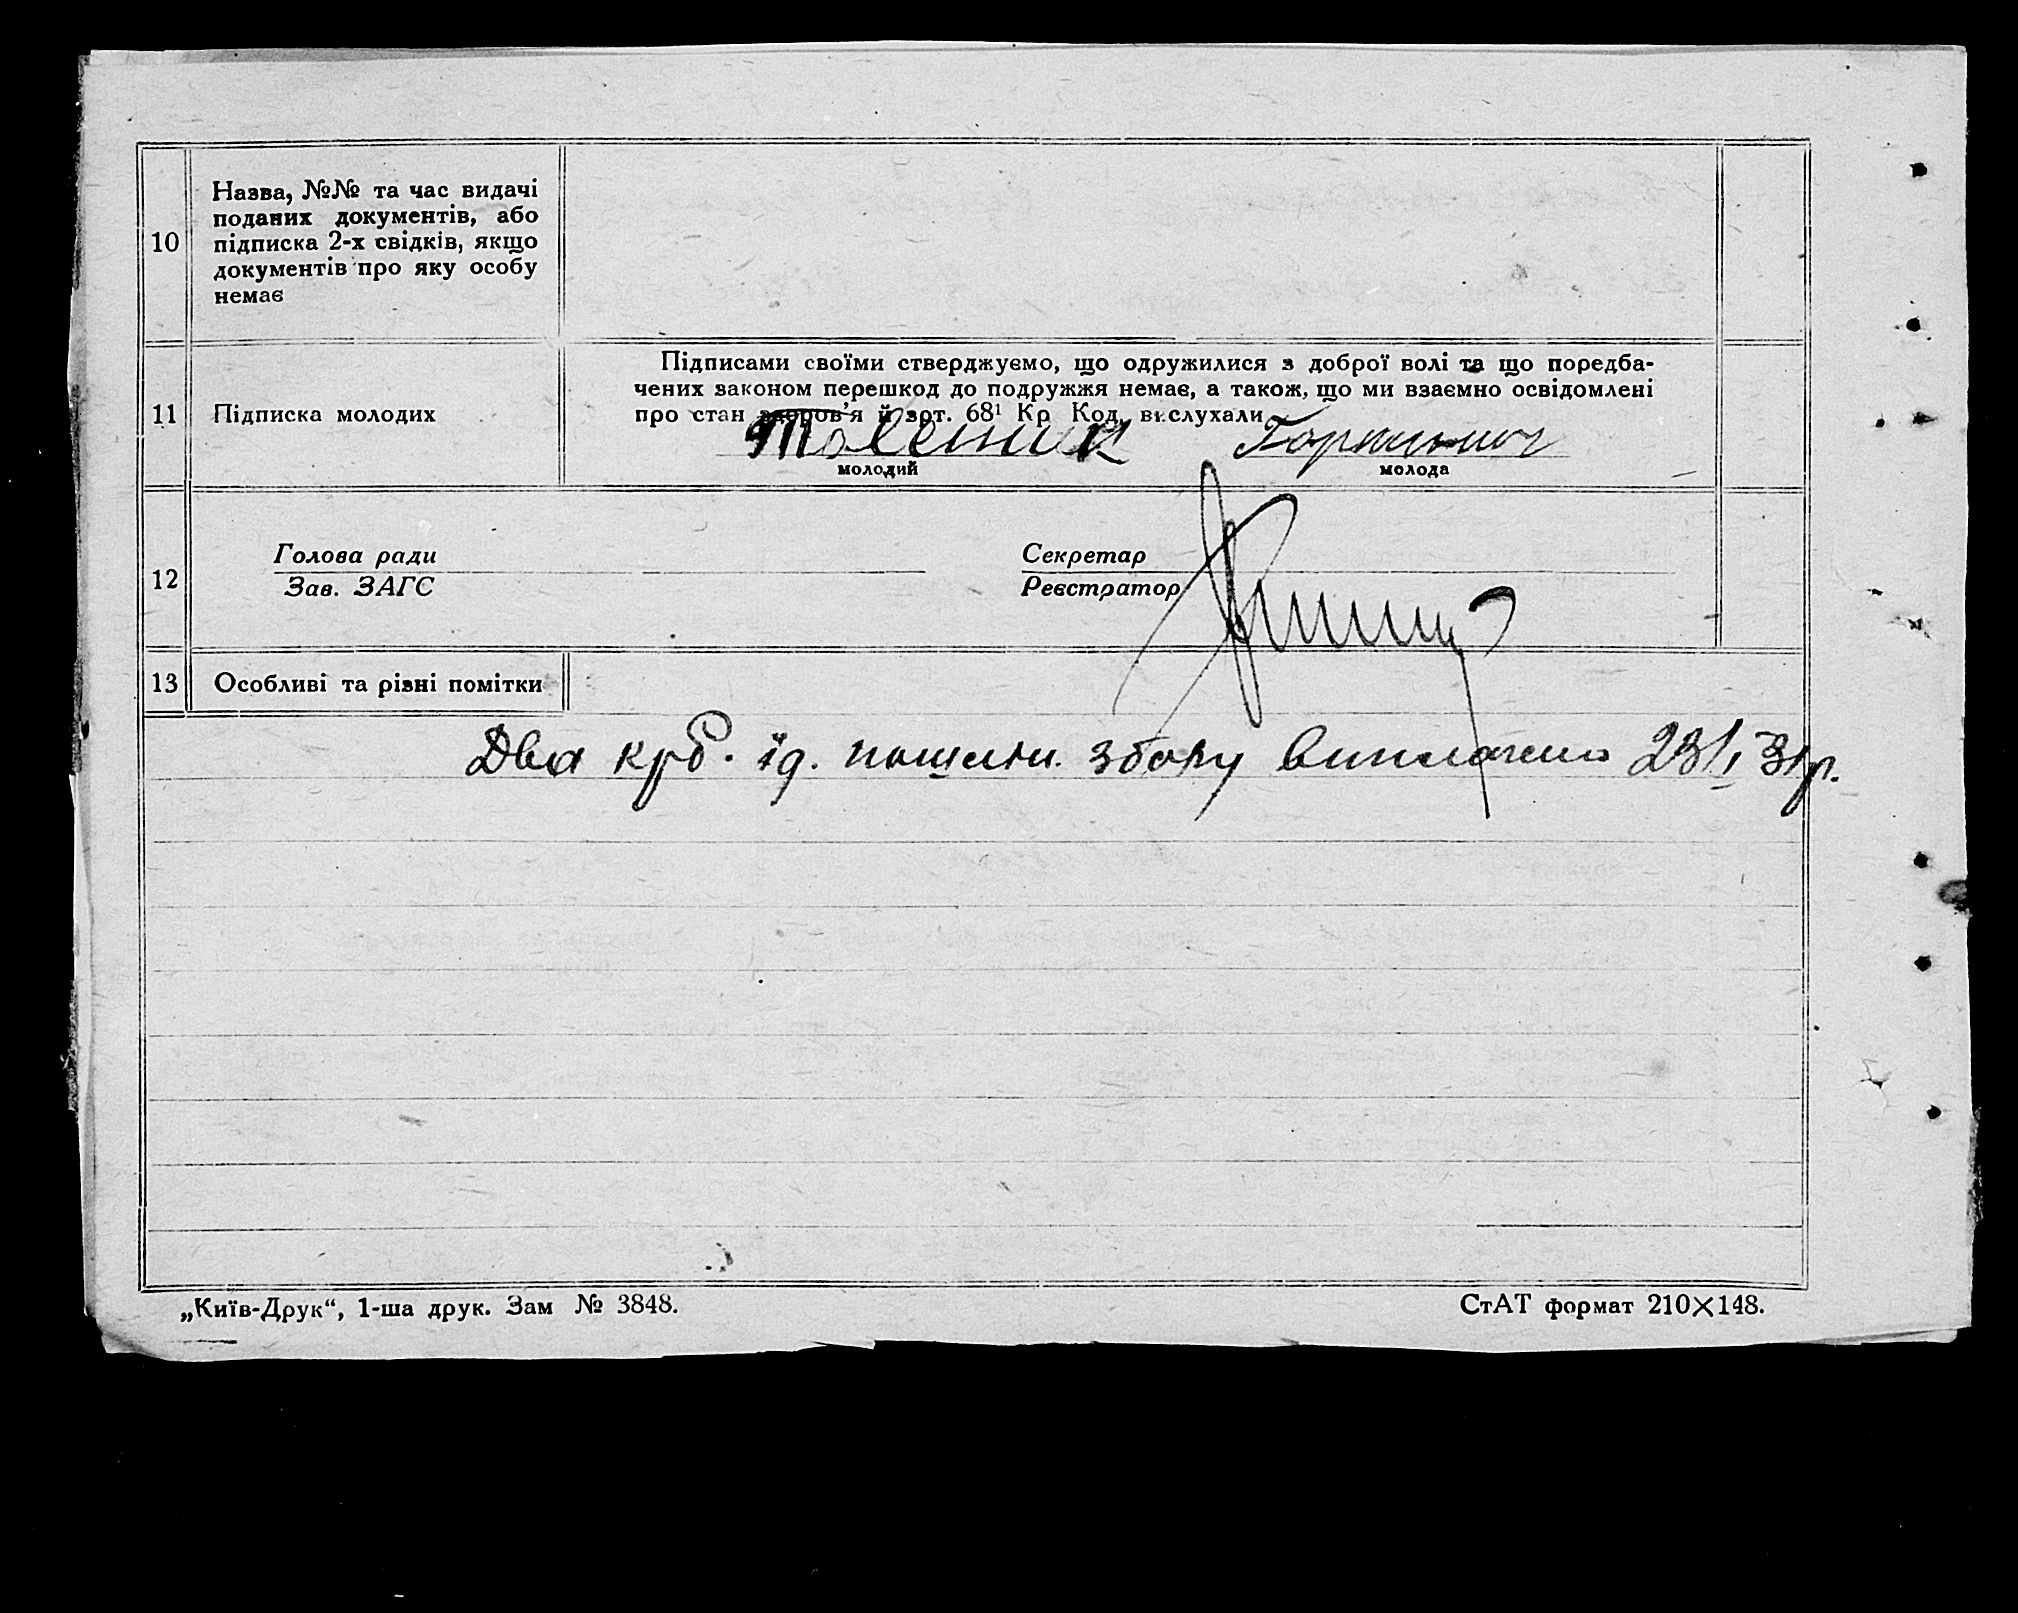 10
Назва, №№ та час видачі
поданих документів, або
підписка 2-х свідків, якщо
документів про яку особу
немає
11
Підписка молодих
Підписами своїми стверджуємо, що одружилися з доброї волі та що поредба-
чених законом перешкод до подружжя немає, а також, що ми взаємно освідомлені
про стан здоров’я й арт. 68¹ Кр Код. вислухали
молодий
молода
12
Голова ради
Зав. ЗАГС
Секретар
Реєстратор
13
Особливі та різні помітки
Два крб. збору виплачено 23/I 31р.
„Київ-Друк“, 1-ша друк. Зам № 3848.
СтАТ формат 210×148.